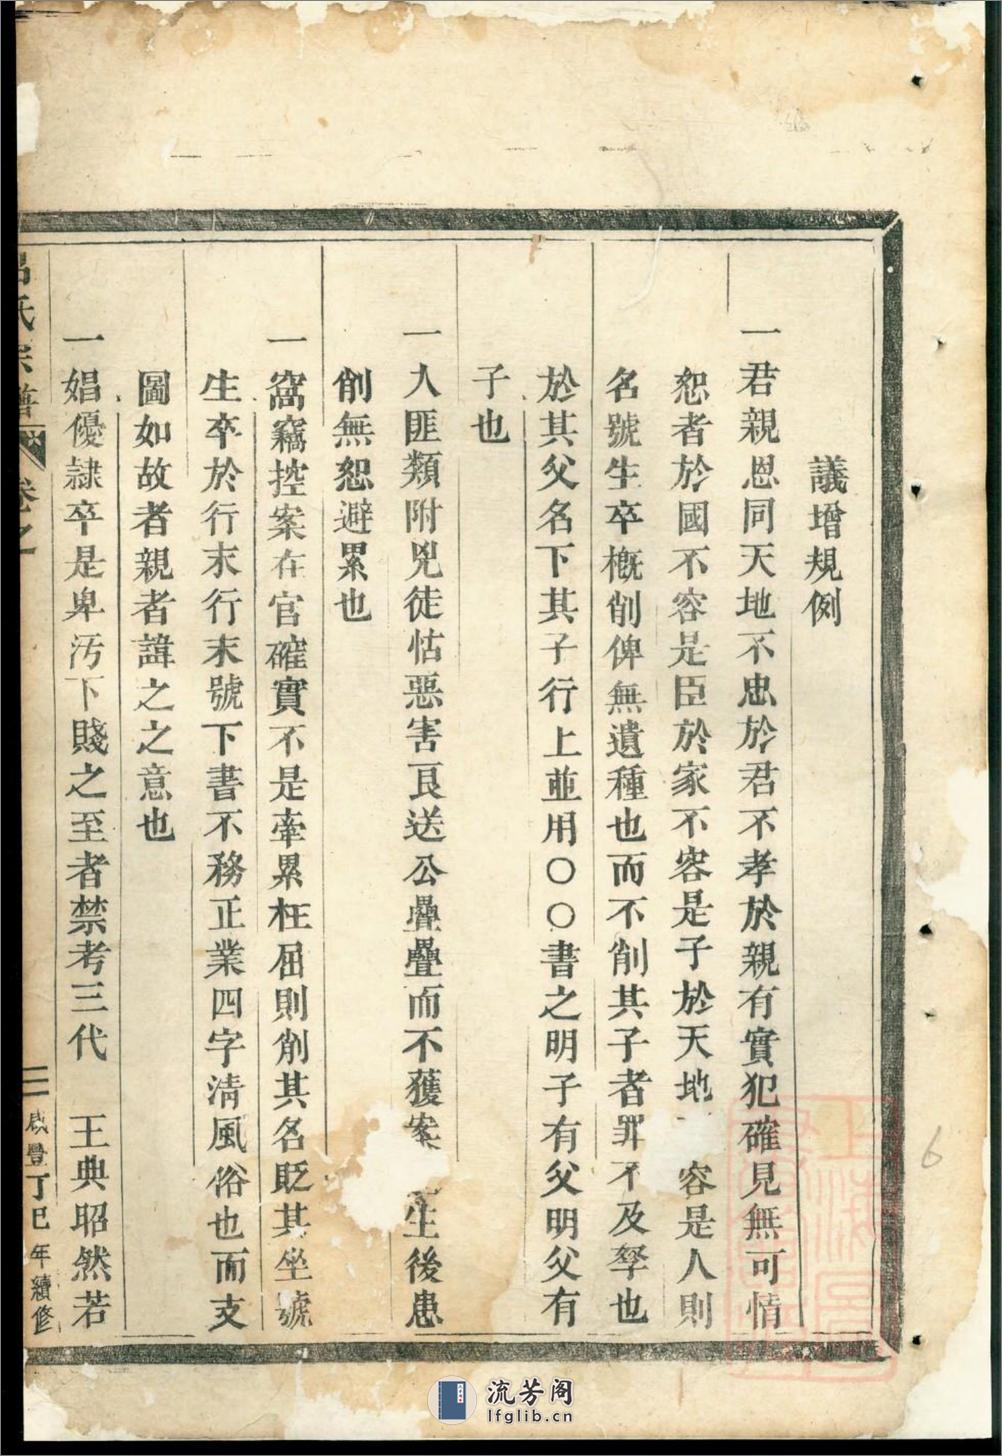 議增規例
一君親恩同天地不忠於君不孝於親有實犯確見無可情
恕者於國不容是臣於家不容是子於天地 容是人則
名號生卒概削俾無遺種也而不削其子者罪不及孥也
於其父名下其子行上並用〇〇書之明子有父明父有
子也
一入匪類附兇徒怙惡害良送公疊疊而不獲案 生後患
削無恕避累也
一窩竊控案在官確實不是牽累枉屈則削其名貶其坐號
生卒於行末行末號下書不務正業四字清風俗也而支
圖如故者親者諱之之意也
一娼優隷卒是卑汚下賤之至者禁考三代 王典昭然若
呂氏宗譜 卷之 二 咸豐丁巳年續修
6
流芳阁
lfglib.cn